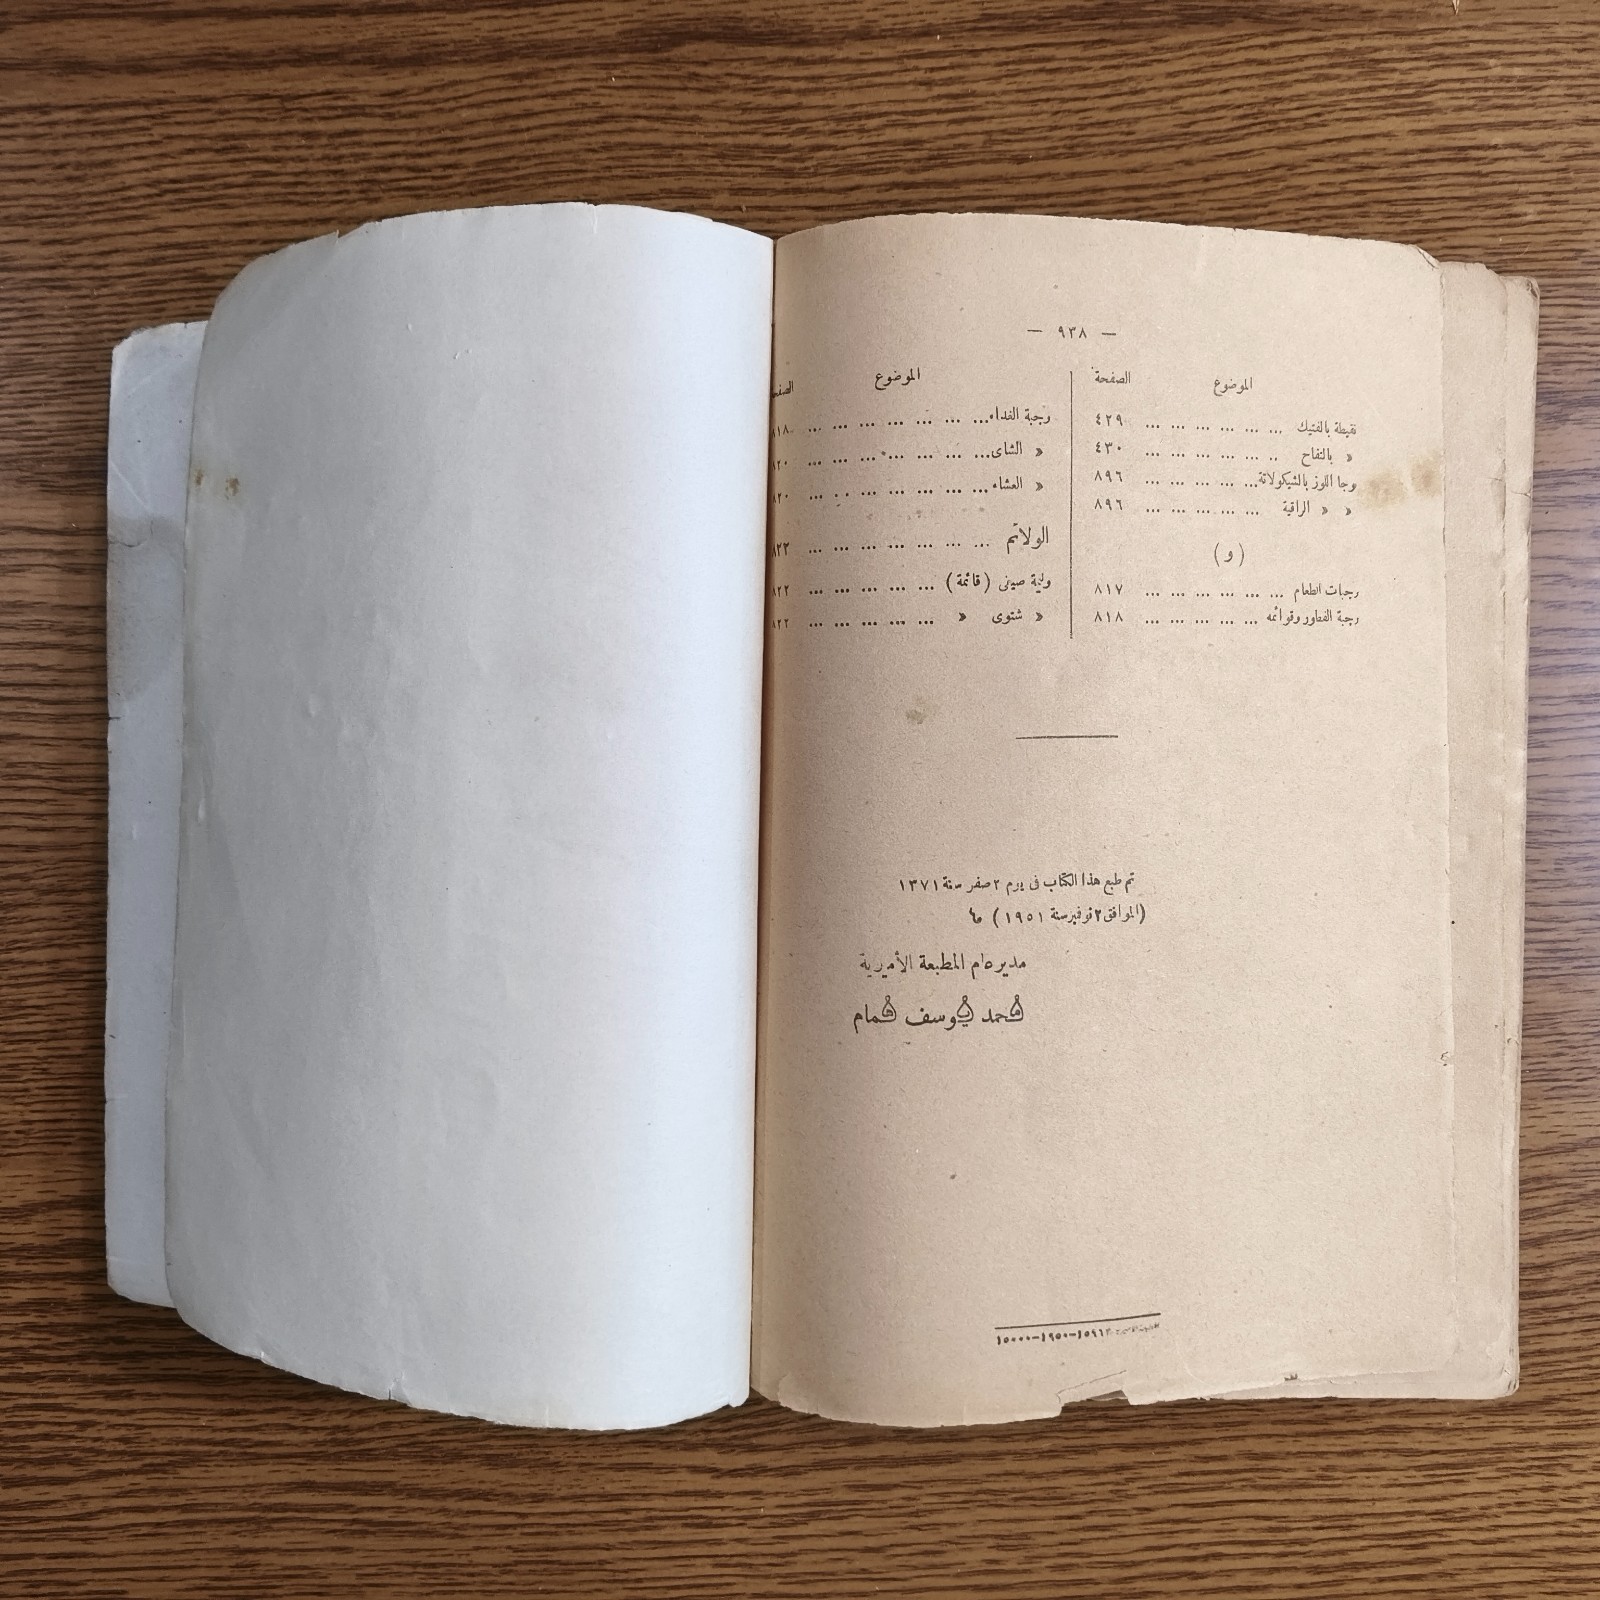 — ٩٣٨ —
الموضوع الصفحة
نقيطة بالفتيك ... ... ... ... ... ... ٤٢٩
» بالتفاح .. ... ... ... ... ... ٤٣٠
نوجا اللوز بالشيكولاتة ... ... ... ... ... ٨٩٦
» » الراقية ... ... ... ... ... ٨٩٦
(و)
وجبات الطعام ... ... ... ... ... ... ٨١٧
وجبة الفطور وقوائمه ... ... ... ... ... ٨١٨
الموضوع الصفحة
وجبة الغداء ... ... ... ... ... ... ... ٨١٨
» الشاى ... ... ... ... ... ... ... ٨٢٠
» العشاء ... ... ... ... ... ... ... ٨٢٠
الولائم ... ... ... ... ... ... ... ٨٢٢
وليمة صيفى (قائمة) ... ... ... ... ... ٨٢٢
» شتوى » ... ... ... ... ... ٨٢٢
تم طبع هذا الكتاب فى يوم ٢ صفر سنة ١٣٧١
(الموافق ٢ نوفمبر سنة ١٩٥١) م
مدير عام المطبعة الأميرية
محمد يوسف همام
١٥٩٦٢-١٩٥٠-١٥٠٠٠